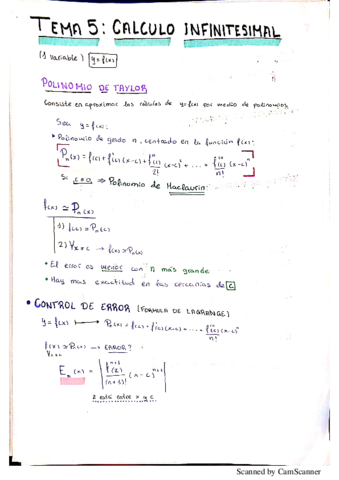 TEMA 5: CALCULO INFINITESIMAL
(1 variable) y=f(x)
POLINOMIO DE TAYLOR
Consiste en aproximar los cálculos de y=f(x) por medio de polinomios
Sea y=f(x):
* Polinomio de grado n, centrado en la función f(x):
Pn(x) = f(c) + f'(c)(x-c) + f''(c)/2! (x-c)² + ... + fⁿ(c)/n! (x-c)ⁿ
Si c=0 ⇒ Polinomio de Maclaurin:
f(x) ≃ Pn(x)
1) f(c) = Pn(c)
2) ∀x≠c → f(x) ≃ Pn(x)
• El error es menor con n más grande
• Hay mas exactitud en las cercanías de c
• CONTROL DE ERROR (FORMULA DE LAGRANGE)
y = f(x) ⟼ Pn(x) = f(c) + f'(c)(x-c) + ... + fⁿ(c)/n! (x-c)ⁿ
f(x) ≃ Pn(x) → ERROR?
∀x≠c
En(x) = | fⁿ⁺¹(z)/(n+1)! (x-c)ⁿ⁺¹ |
z está entre x y c
Scanned by CamScanner